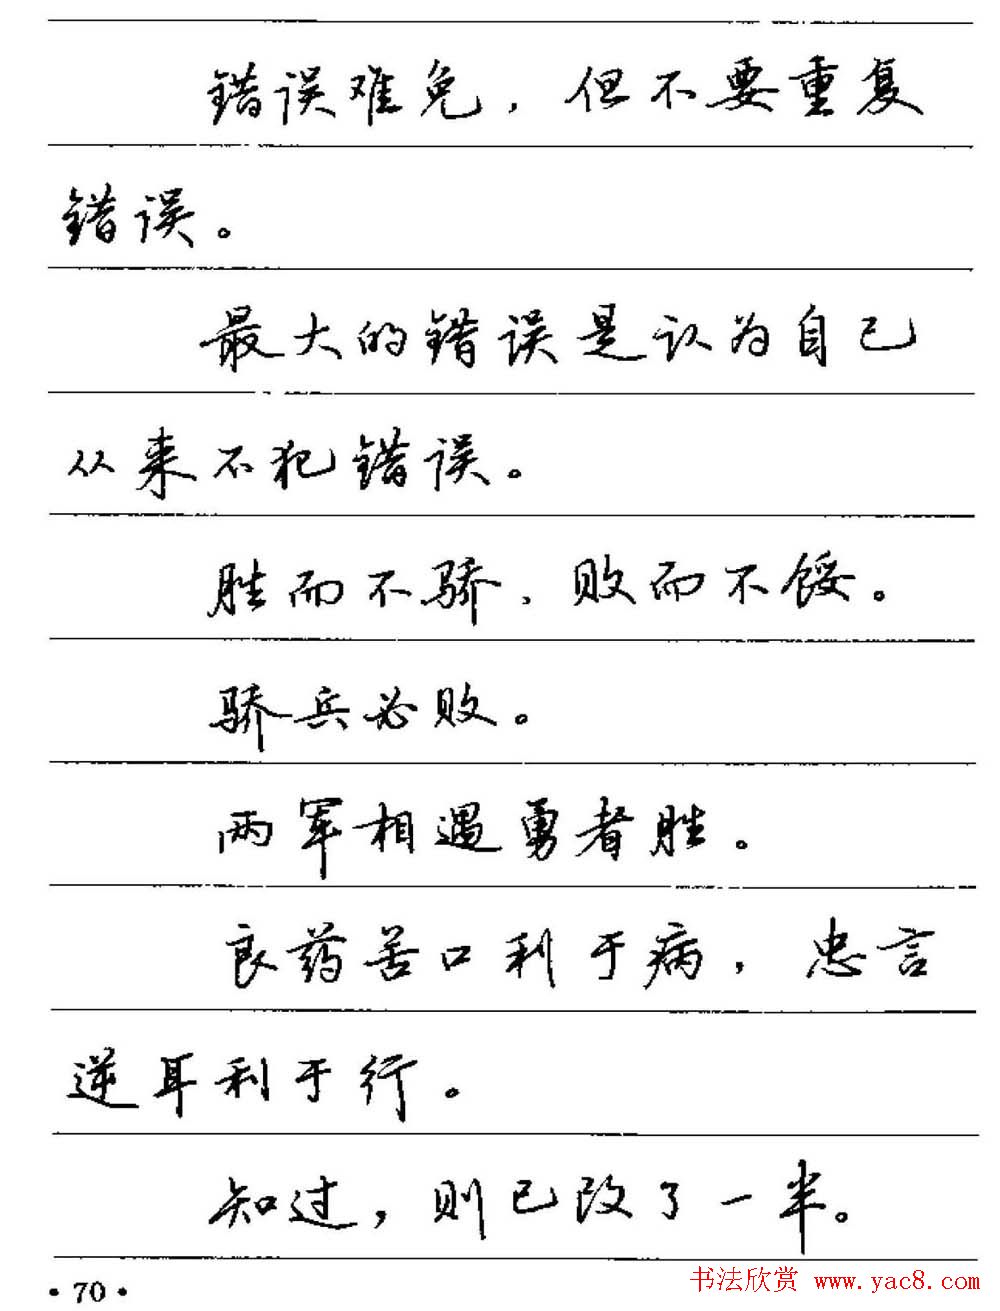 错误难免，但不要重复
错误。
最大的错误是认为自己
从来不犯错误。
胜而不骄，败而不馁。
骄兵必败。
两军相遇勇者胜。
良药苦口利于病，忠言
逆耳利于行。
知过，则已改了一半。
·70·
书法欣赏 www.yac8.com